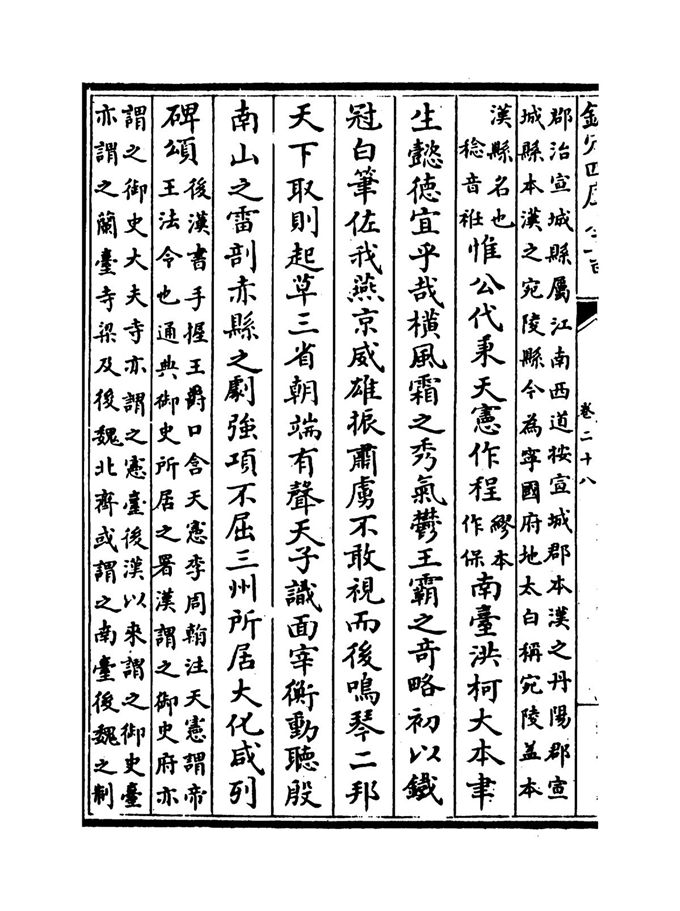 欽定四庫全書
卷二十八
郡治宣城縣屬江南西道按宣城郡本漢之丹陽郡宣
城縣本漢之宛陵縣今為寧國府地太白稱宛陵益本
漢縣名也
稔音衽
惟公代秉天憲作程
繆本
作保
南臺洪柯大本聿
生懿德宜乎哉橫風霜之秀氣鬱王霸之竒略初以鐵
冠白筆佐我燕京威雄振肅虜不敢視而後鳴琴二邦
天下取則起草三省朝端有聲天子識面宰衡動聽殷
南山之雷剖赤縣之劇強項不屈三州所居大化咸列
碑頌
後漢書手握王爵口含天憲李周翰注天憲謂帝
王法令也通典御史所居之署漢謂之御史府亦
謂之御史大夫寺亦謂之憲臺後漢以來謂之御史臺
亦謂之蘭臺寺梁及後魏北齊或謂之南臺後魏之制